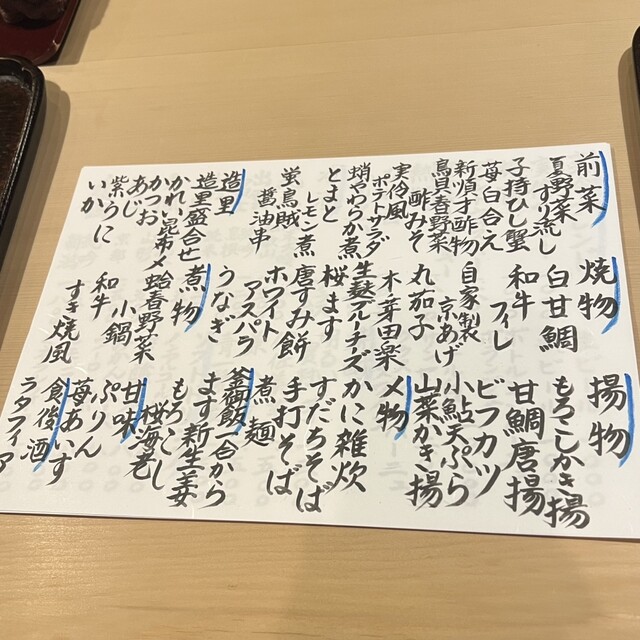 前菜
夏野菜
すり流し
子持ひし蟹
苺白合え
新順才酢物
鳥貝春野菜
酢みそ
実伶風
ポテトサラダ
蛸やわらか煮
とまと
レモン煮
蛍烏賊
醤油串
造里
造里盛合せ
かれい昆布〆
かつお
あじ
紫うに
いか
焼物
白甘鯛
和牛
フィレ
自家製
京あげ
丸茄子
木芽田楽
生麩ブルーチーズ
桜ます
唐すみ餅
ホワイト
アスパラ
うなぎ
煮物
蛤春野菜
小鍋
和牛
すき焼風
揚物
もろこしかき揚
甘鯛唐揚
ビフカツ
小鮎天ぷら
山菜かき揚
〆物
かに雑炊
すだちそば
手打そば
煮麺
釜御飯一合から
ます新生姜
もろこし
桜海老
甘味
ぷりん
苺あいす
食後酒
ラタフィア